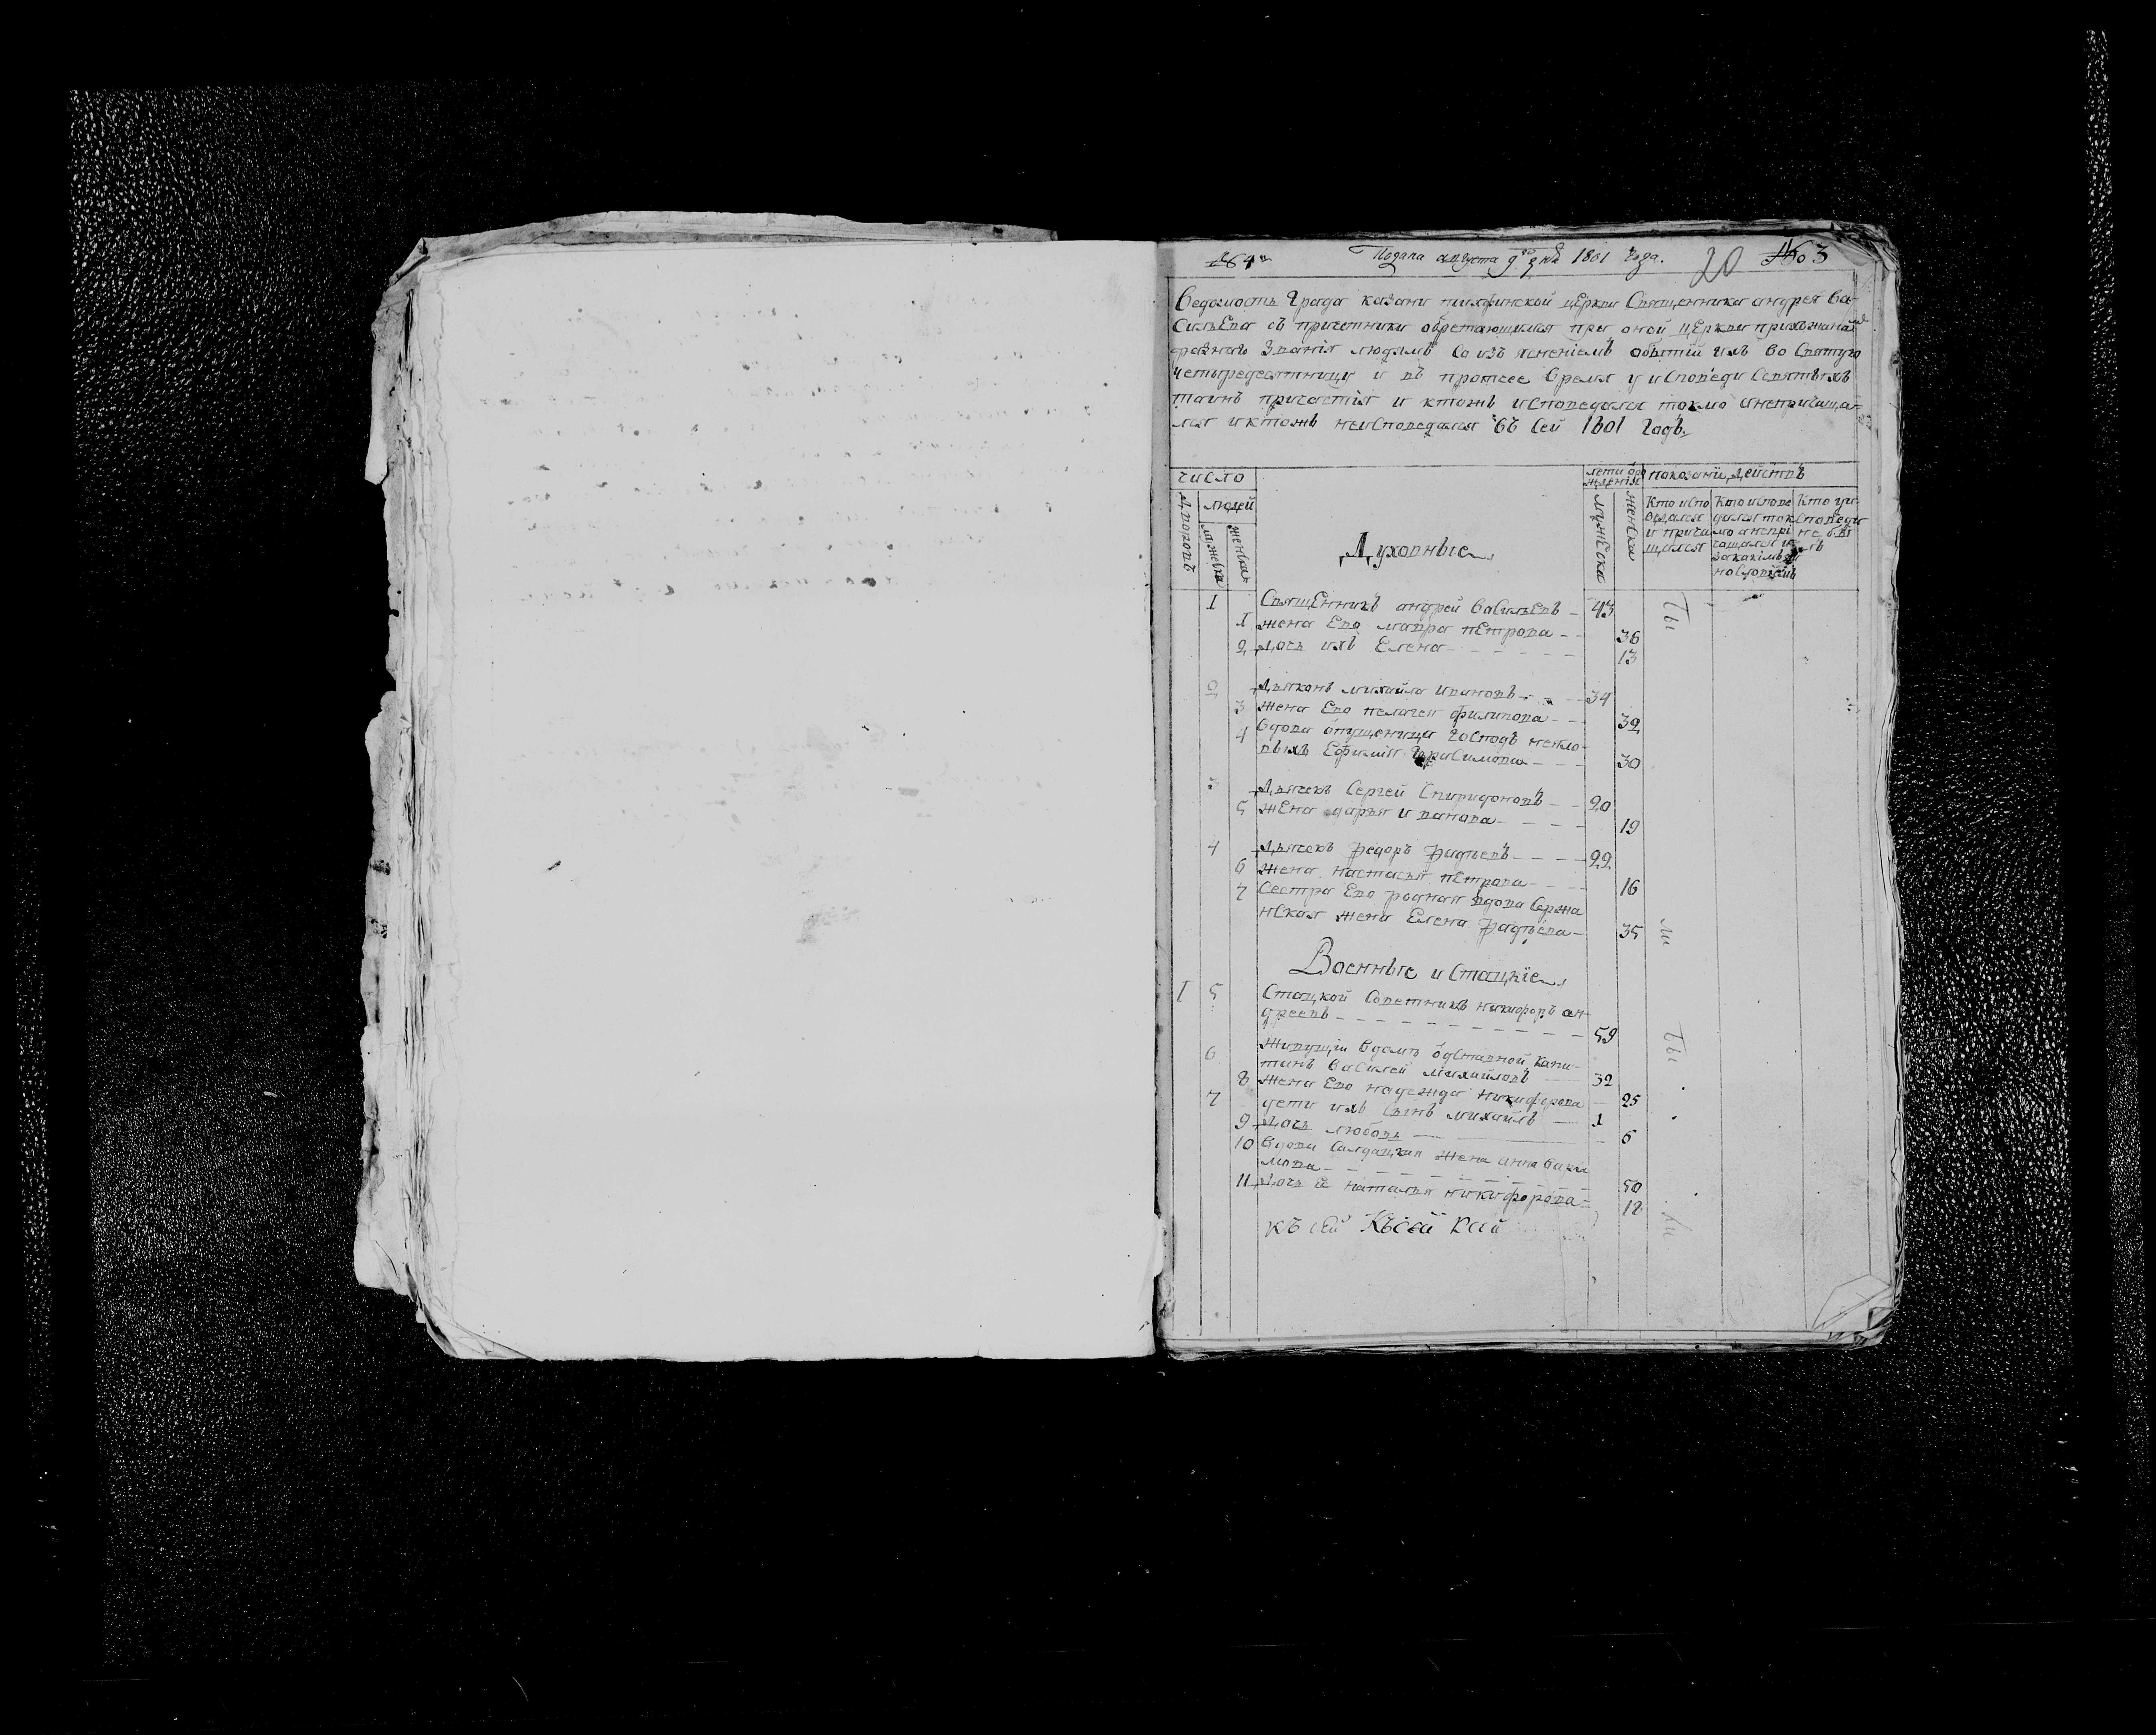 Подана августа 9го дня 1801 года. 20 3
Ведомость града казани тихфинской церкви Священника андрея ва-
сильева съ причетники обретающимся при оной церкви прихожанамъ
разнаго званія людямъ со изъясненіемъ бытій ихъ во Святую
четыредесятницу и въ протчее время у исповеди Святыхъ
таинъ причастія и ктожъ исповедался токмо инепричаща-
лся иктожъ неисповедался въ Сей 1801 годъ
число
дворовъ
людей
мужеска
женска
Духовные
лети рождения
мужеска
женска
показани действъ
Кто испо
ведался
и прича
щался
Кто испове
дался ток
мо анепри
чащался и
закакимъ ви
нословіемъ
Кто уи-
споведи
не бы
лъ
1 Священникъ андрей васильевъ 43
1 жена Ево мавра петрова 36
2 дочь ихъ Елена 13
2 дьяконъ михайла ивановъ 34
3 жена Ево пелагея филипова 32
4 вдова отпущеница господъ
Ефимія герасимова 30
3 дьячекъ Сергей Спиридоновъ 20
5 жена дарья иванова 19
4 дьячекъ федоръ фадѣевъ 22
6 жена настасья петрова 16
7 Сестра Ево родная вдова Сержа
нская жена Елена фадѣева 35
Военные и Стацкіе
1 5 Стацкой Советникъ никифоръ ан-
дреевъ 59
6 живущіи вдомѣ отставной капи-
танъ василей михайловъ 32
8 жена Ево надежда никифорова 25
7 дети ихъ сынъ михайлъ 1
9 дочь любовь 6
10 вдова салдацкая жена анна
50
11 дочь Ей наталья никифорова 18
къ сей Късей ксей
Ты
ли
Ты
ли